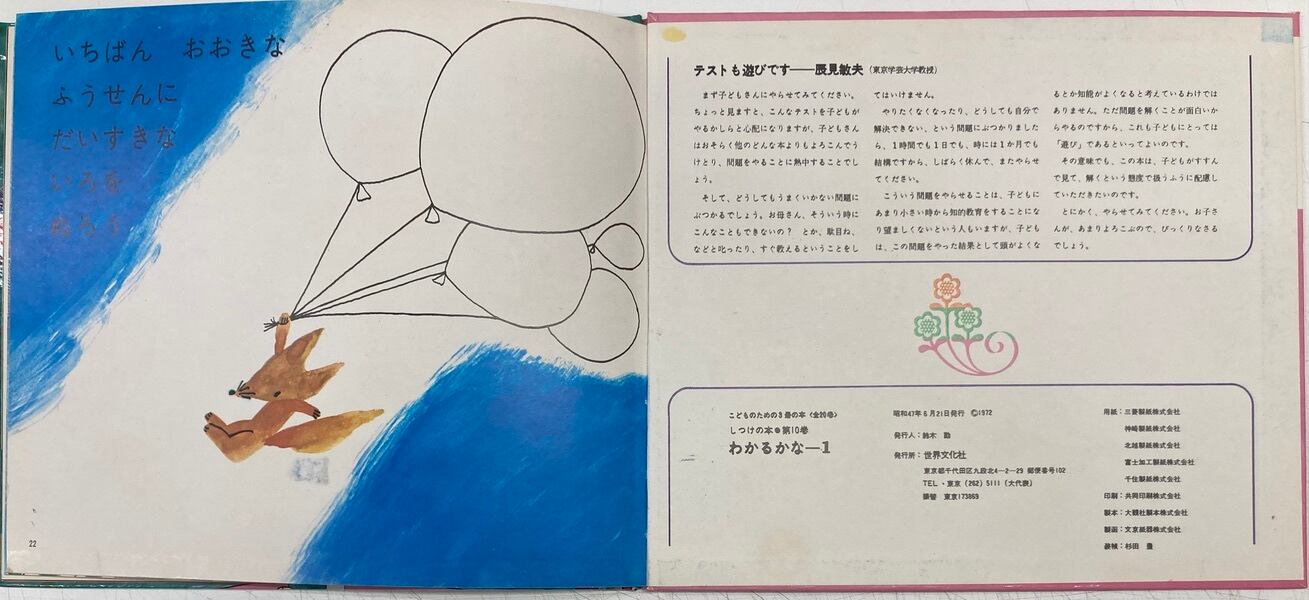 いちばん　おおきな
ふうせんに
だいすきな
いろを
ぬろう
22
テストも遊びです――辰見敏夫（東京学芸大学教授）
まず子どもさんにやらせてみてください。
ちょっと見ますと、こんなテストを子どもが
やるかしらと心配になりますが、子どもさん
はおそらく他のどんな本よりもよろこんでう
けとり、問題をやることに熱中することでし
ょう。
そして、どうしてもうまくいかない問題に
ぶつかるでしょう。お母さん、そういう時に
こんなこともできないの？　とか、駄目ね、
などと叱ったり、すぐ教えるということをし
てはいけません。
やりたくなくなったり、どうしても自分で
解決できない、という問題にぶつかりました
ら、1時間でも1日でも、時には1か月でも
結構ですから、しばらく休んで、またやらせ
てください。
こういう問題をやらせることは、子どもに
あまり小さい時から知的教育をすることにな
り望ましくないという人もいますが、子ども
は、この問題をやった結果として頭がよくな
るとか知能がよくなると考えているわけでは
ありません。ただ問題を解くことが面白いか
らやるのですから、これも子どもにとっては
「遊び」であるといってよいのです。
その意味でも、この本は、子どもがすすん
で見て、解くという態度で扱うように配慮し
ていただきたいのです。
とにかく、やらせてみてください。お子さ
んが、あまりよろこぶので、びっくりなさる
でしょう。
こどものための3册の本〈全20巻〉
しつけの本●第10巻
わかるかな―1
昭和47年6月21日発行　©1972
発行人：鈴木　勤
発行所：世界文化社
東京都千代田区九段北4－2－29 郵便番号102
TEL・東京（262）5111（大代表）
振替　東京173869
用紙：三菱製紙株式会社
神崎製紙株式会社
北越製紙株式会社
富士加工製紙株式会社
千住製紙株式会社
印刷：共同印刷株式会社
製本：大観社製本株式会社
製函：文京紙器株式会社
装幀：杉田　豊